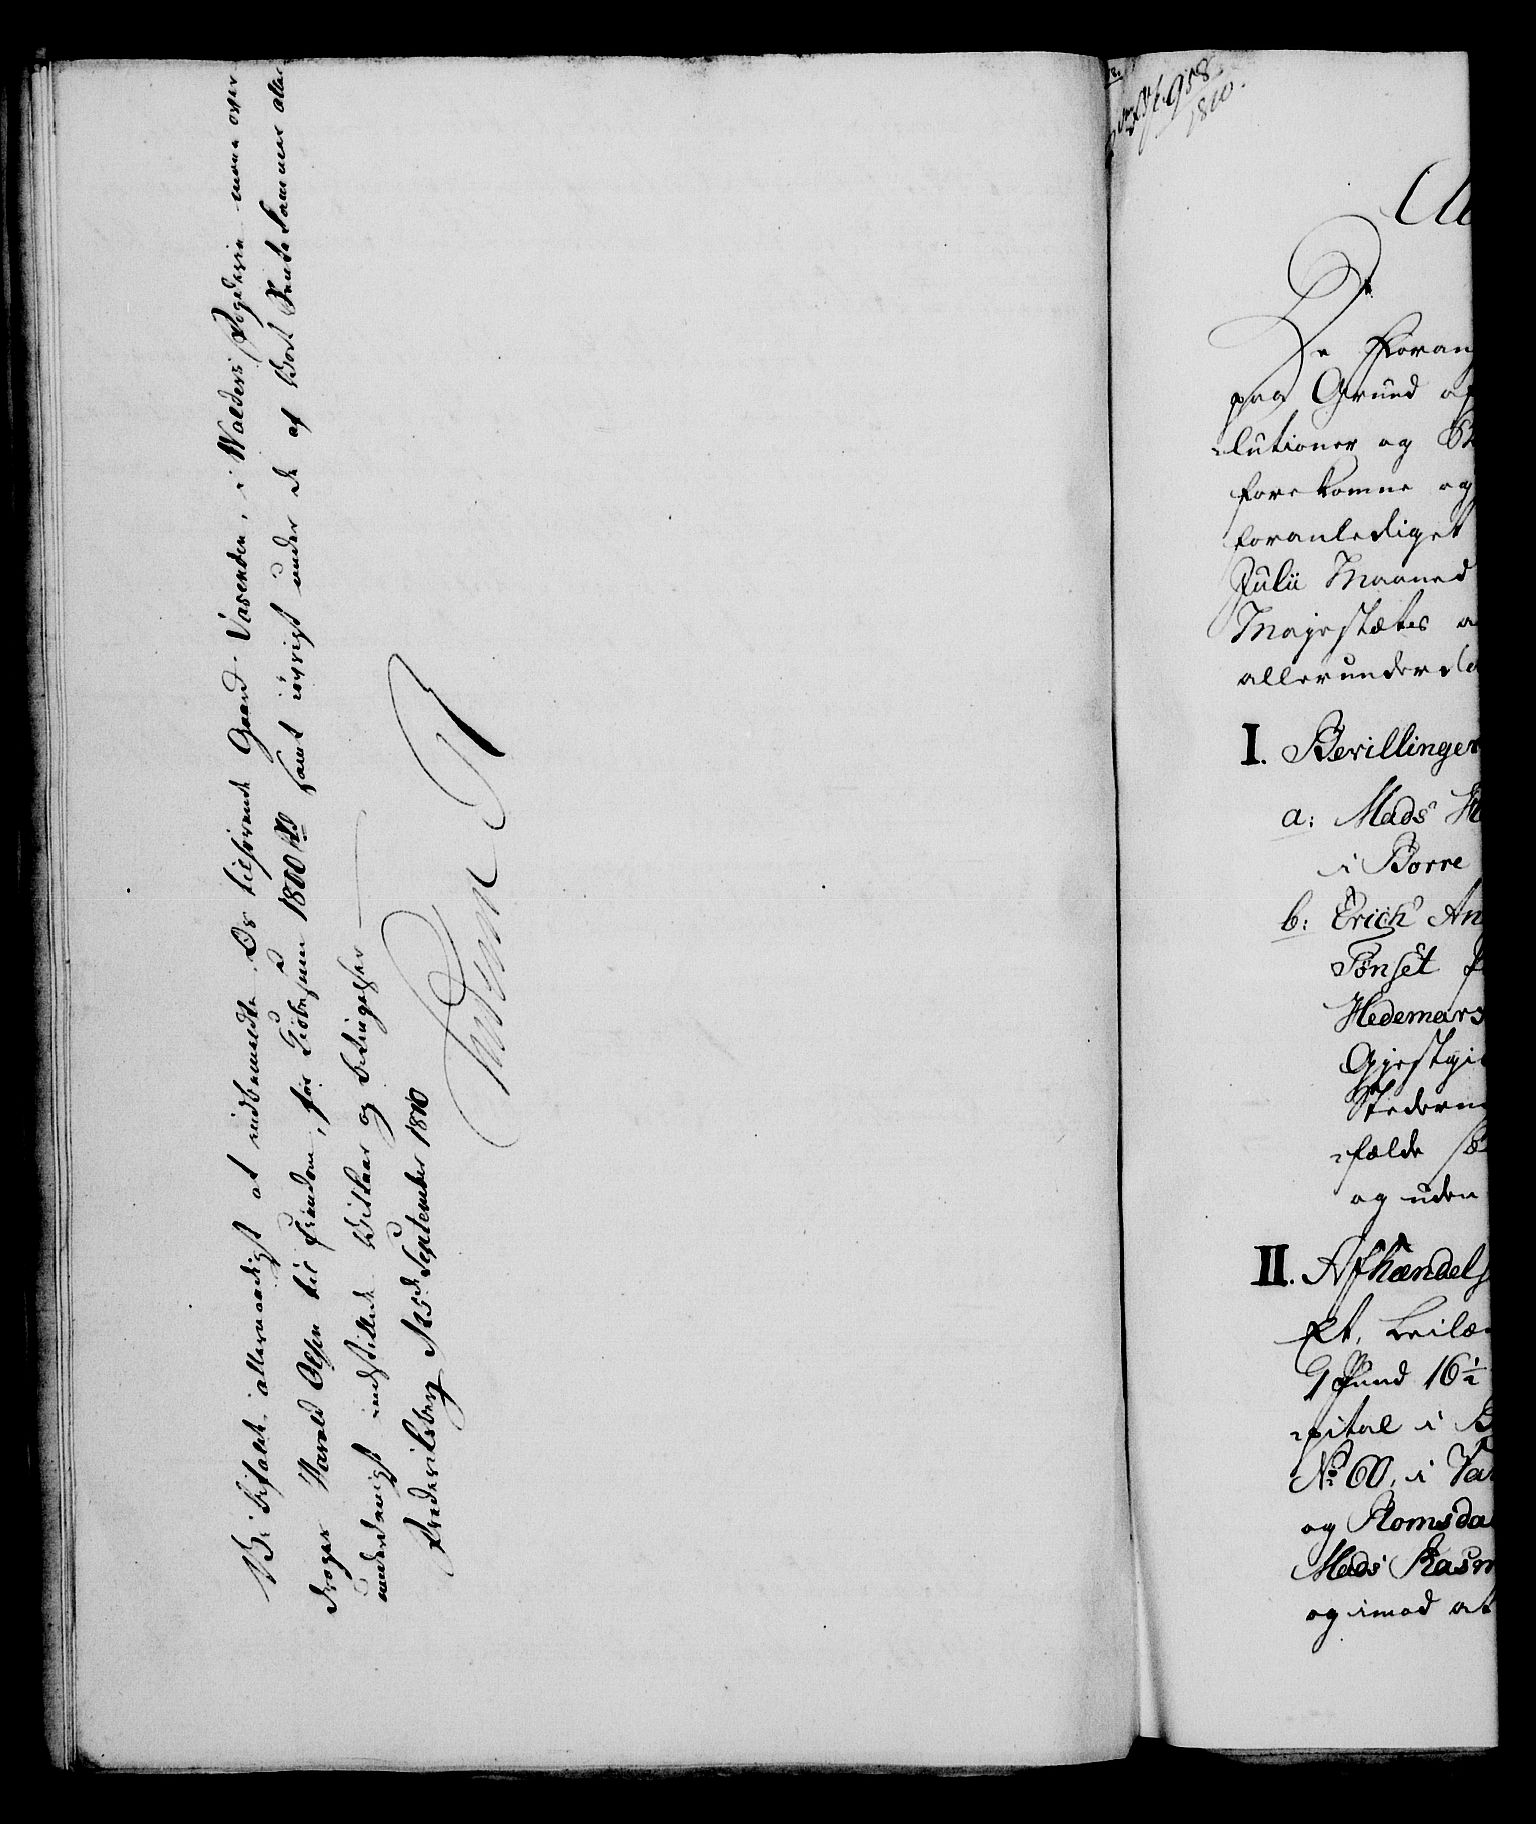 Vi bifalde allernaadigst at indbemeldte, Os tilhørende Gaard Vasenden, i Walders Fogderie maae over-
drages Harald Olsen til Eiendom, for Kiøbesum 1800 rd samt iøvrigt under de af Vort Rentekammer aller-
underdanigst indstillede Vilkaar og Betingelser
Frederiksberg d 25de September 1810
Frederik R
958
1810.
De foran
paa Grund af
lutioner og
forekomne og
foranlediget
Julii Maaned
Majestætes a
allerunderda
I. Bevillinger
a: Mads
i Borre
b: Erich An
Tønset
Hedemars
Gjestgi
Stederne
fælde
og uden
II. Afhændels
Et, beilæ
1 Pund 16½
pital i
No 60, i
og Romsda
Mads Rasm
og imod at